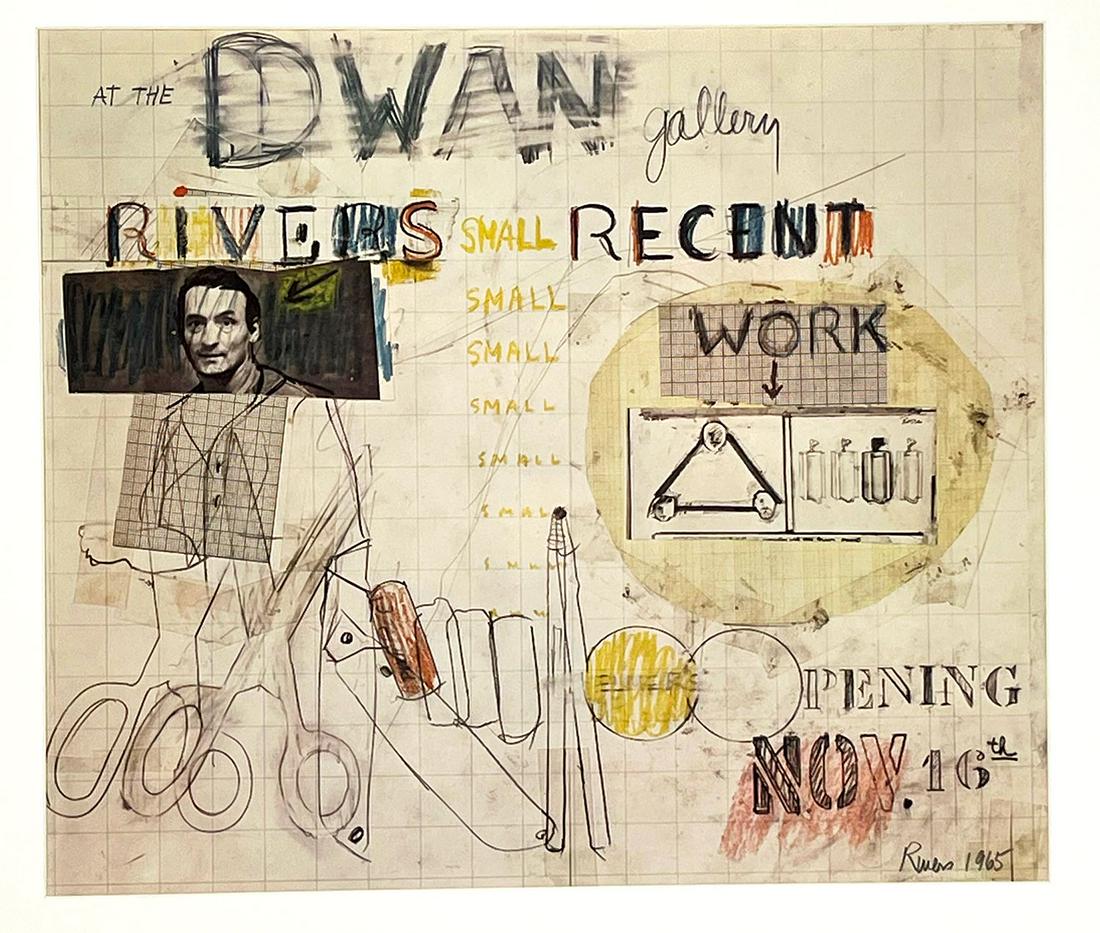 AT THE DWAN gallery
RIVERS SMALL RECENT
SMALL
SMALL
SMALL
SMALL
SMALL
WORK
RIVERS
OPENING
NOV. 16th
Rivers 1965